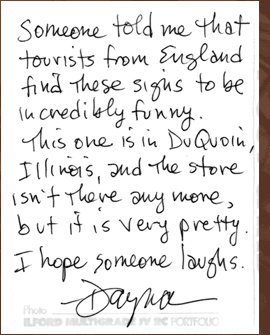 Someone told me that
tourists from England
find these signs to be
incredibly funny.
This one is in DuQuoin,
Illinois, and the store
isn't there any more,
but it is very pretty.
I hope someone laughs.
Dayna
Photo
ILFORD MULTIGRADE IV RC PORTFOLIO